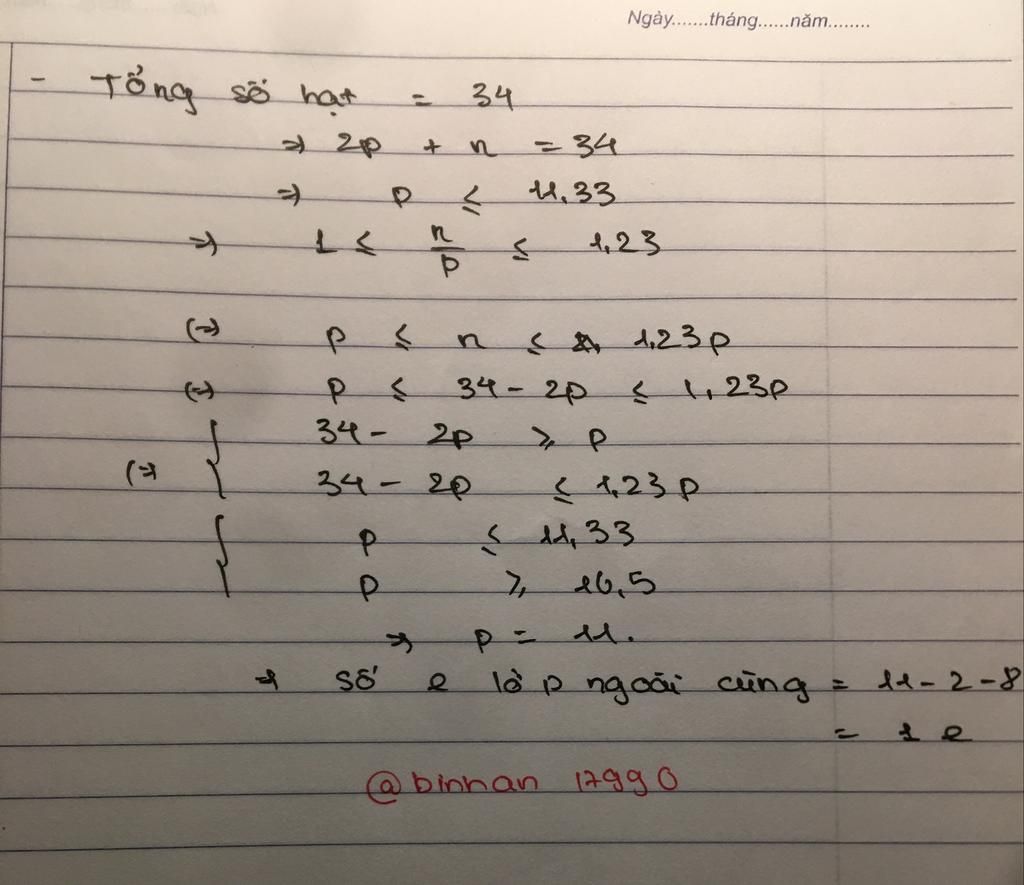 Ngày.......tháng......năm........
- Tổng số hạt = 34
=> 2p + n = 34
=> p ≤ 11,33
=> 1 ≤ n/p ≤ 1,23
(=) p ≤ n ≤ 1,23p
(=) p ≤ 34 - 2p ≤ 1,23p
(=) { 34 - 2p ≥ p
34 - 2p ≤ 1,23p
{ p ≤ 11,33
p ≥ 10,5
=> p = 11.
=> số e lớp ngoài cùng = 11 - 2 - 8
= 1 e
@binhan 17990